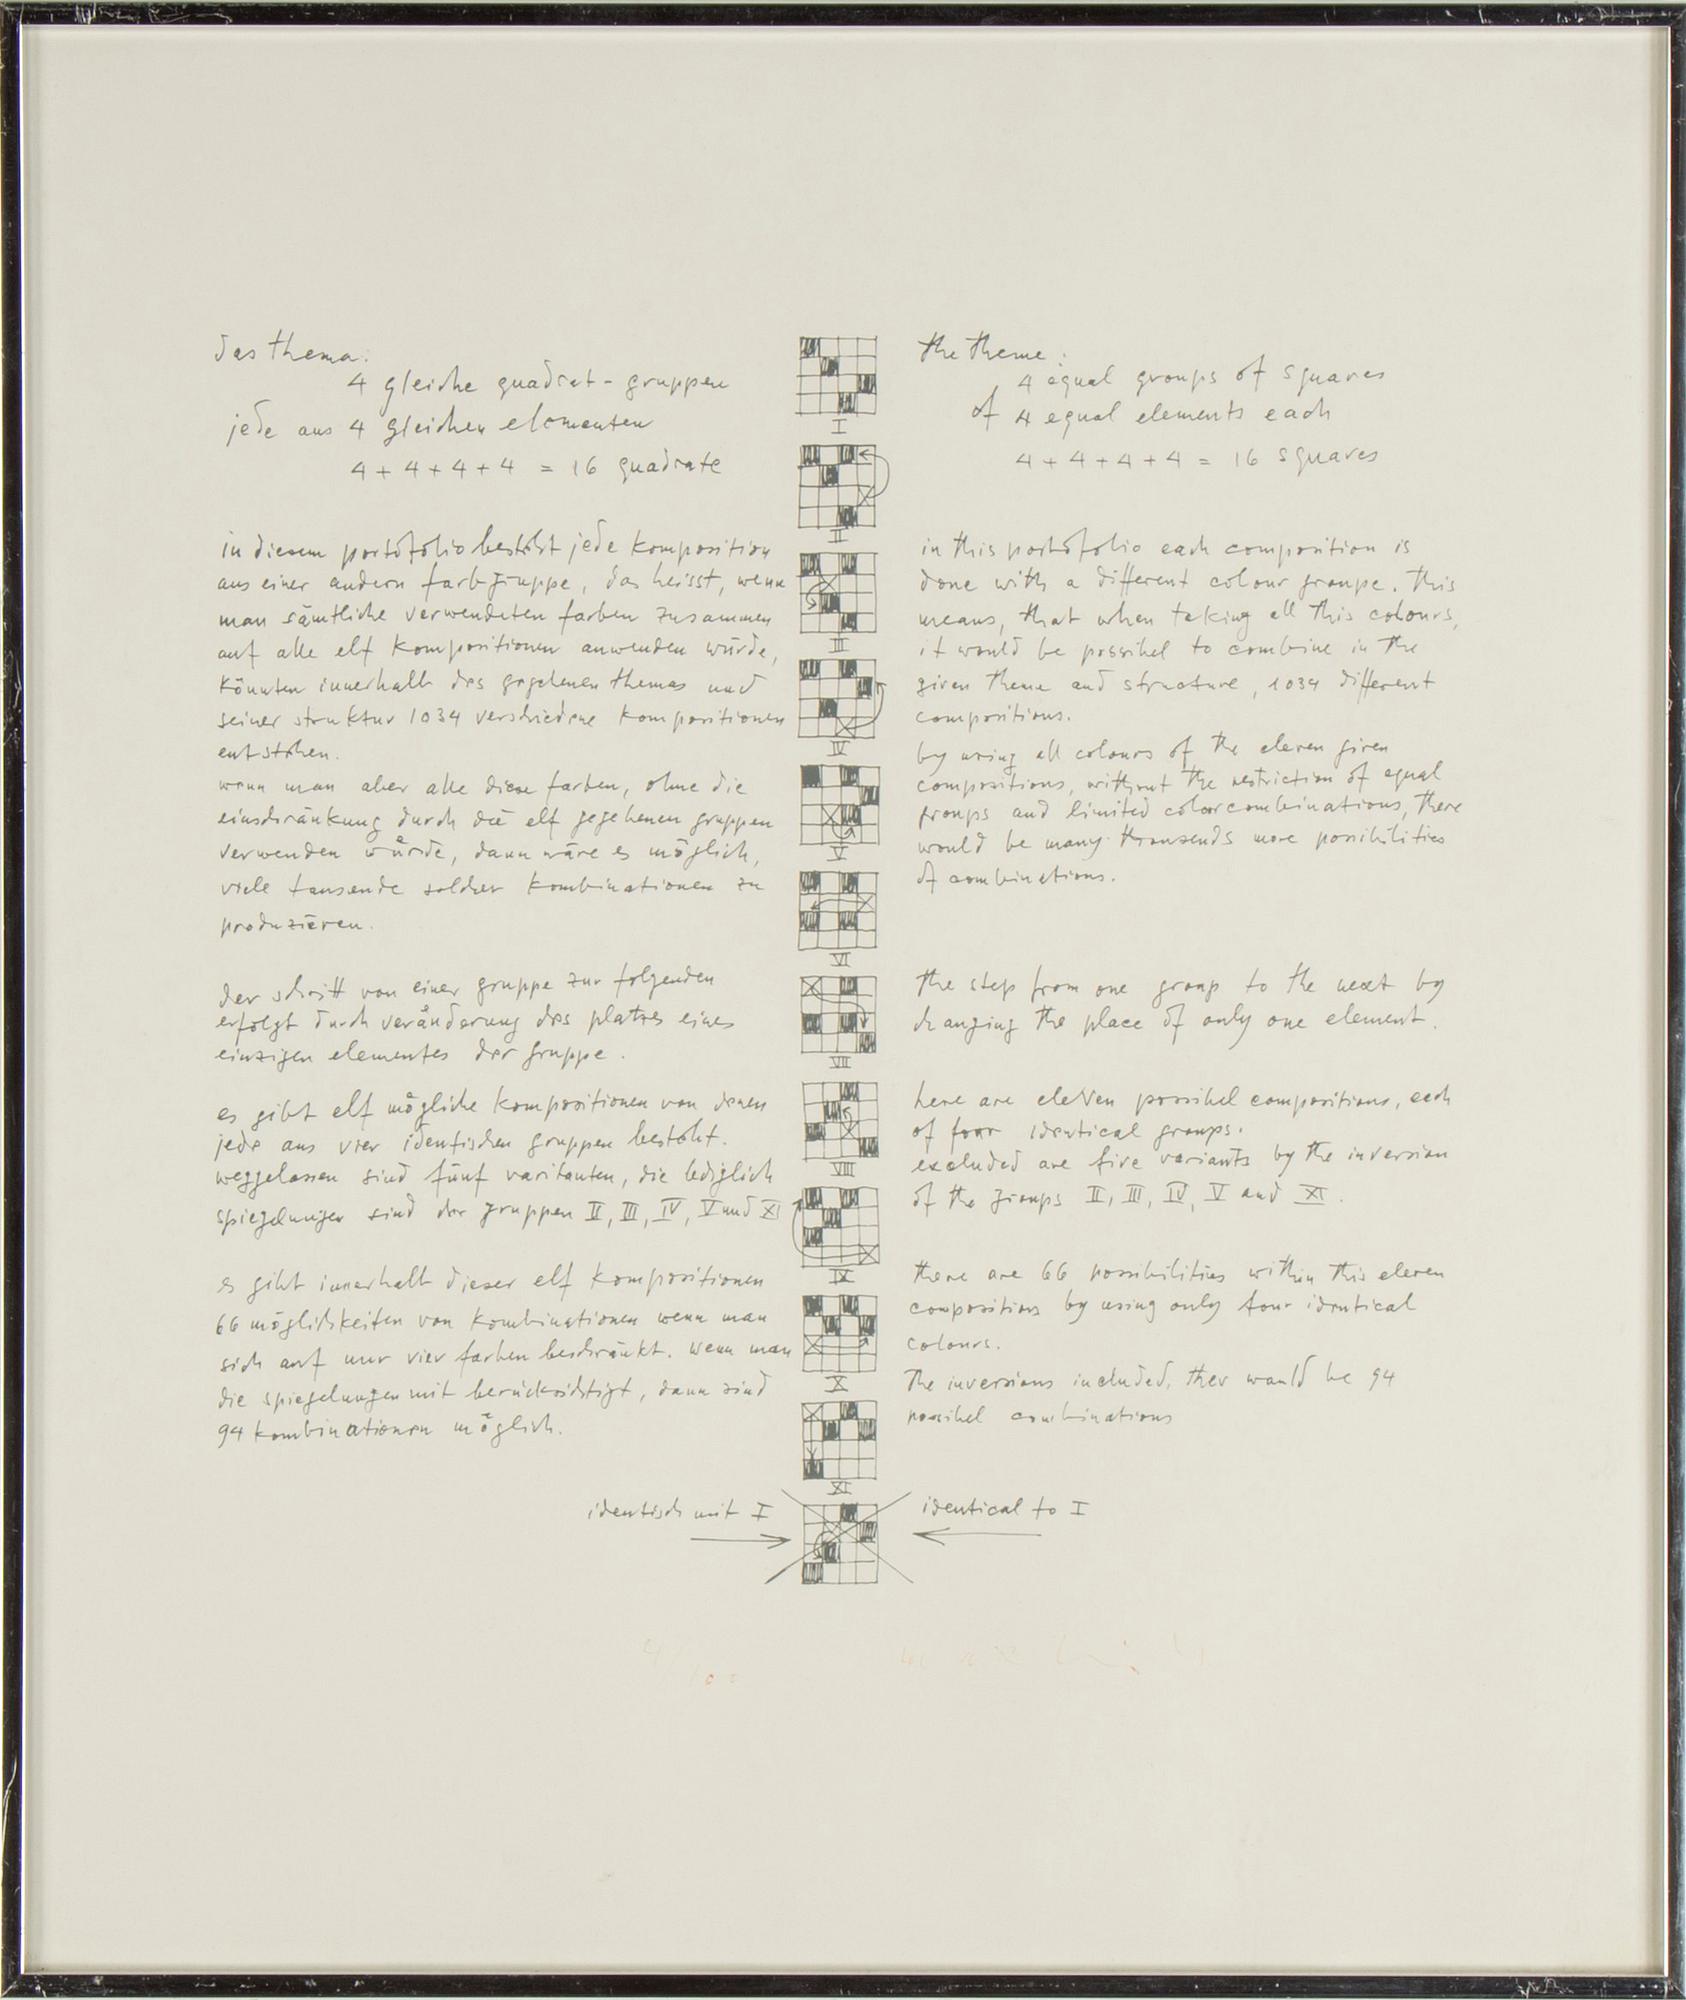 das thema:
4 gleiche quadrat-gruppen
jede aus 4 gleichen elementen
4 + 4 + 4 + 4 = 16 quadrate
in diesem portofolio besteht jede komposition
aus einer andern farbgruppe, das heisst, wenn
man sämtliche verwendeten farben zusammen
auf alle elf kompositionen anwenden würde,
könnten innerhalb des gegebenen themas und
seiner struktur 1034 verschiedene kompositionen
entstehen.
wenn man aber alle diese farben, ohne die
einschränkung durch die elf gegebenen gruppen
verwenden würde, dann wäre es möglich,
viele tausende solcher kombinationen zu
produzieren.
der schritt von einer gruppe zur folgenden
erfolgt durch veränderung des platzes eines
einzigen elementes der gruppe.
es gibt elf mögliche kompositionen von denen
jede aus vier identischen gruppen besteht.
weggelassen sind fünf varitanten, die lediglich
spiegelungen sind der gruppen II, III, IV, V und XI
es gibt innerhalb dieser elf kompositionen
66 möglichkeiten von kombinationen wenn man
sich auf nur vier farben beschränkt. wenn man
die spiegelungen mit berücksichtigt, dann sind
94 kombinationen möglich.
I
II
III
IV
V
VI
VII
VIII
IX
X
XI
the theme:
4 equal groups of squares
of 4 equal elements each
4 + 4 + 4 + 4 = 16 squares
in this portofolio each composition is
done with a different colour groupe. this
means, that when taking all this colours,
it would be possibel to combine in the
given theme and structure, 1034 different
compositions.
by using all colours of the eleven given
compositions, without the restriction of equal
groups and limited colorcombinations, there
would be many thousends more possibilities
of combinations.
the step from one group to the next by
changing the place of only one element.
here are eleven possibel compositions, each
of four identical groups.
excluded are five variants by the inversion
of the groups II, III, IV, V and XI.
there are 66 possibilities within this eleven
compositions by using only four identical
colours.
the inversions included, ther would be 94
possibel combinations
identisch mit I
identical to I